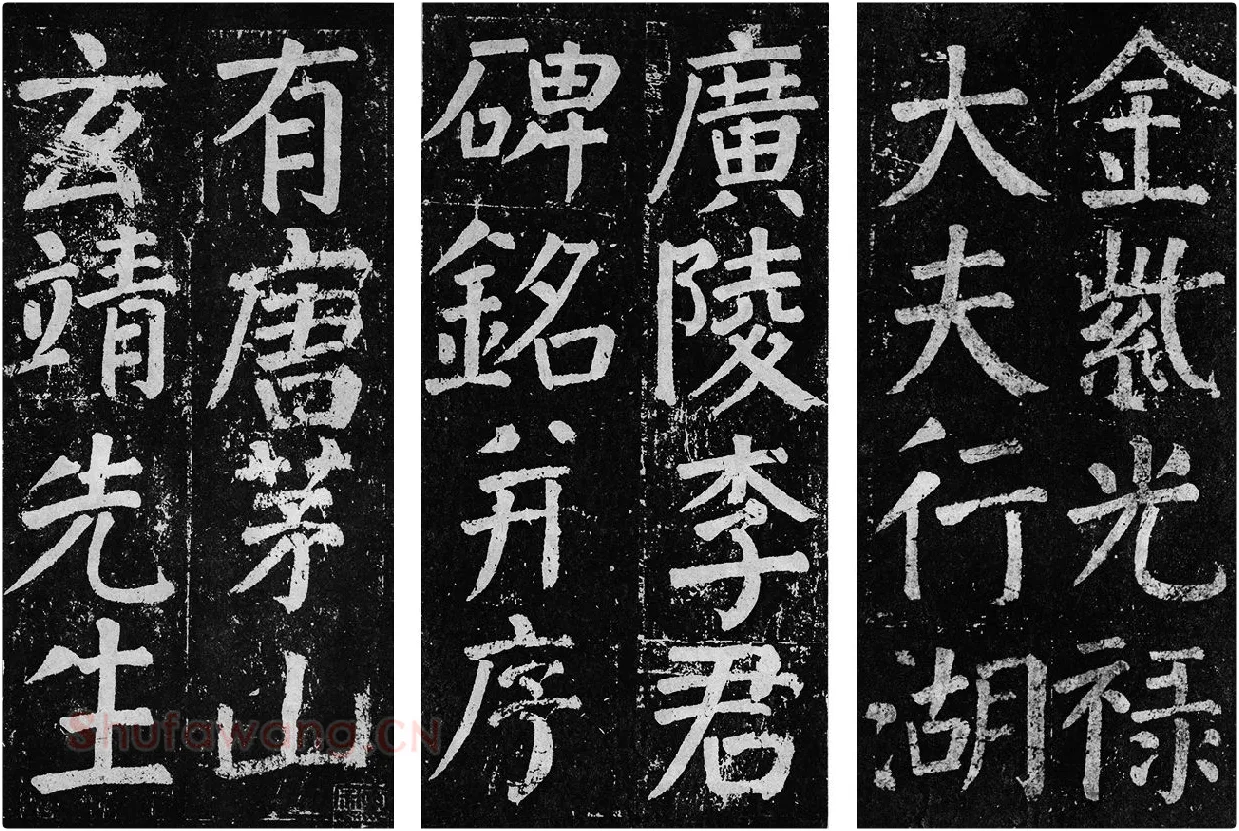 有唐茅山
玄靖先生
廣陵李君
碑銘并序
金紫光禄
大夫行湖
Shufawang.CN